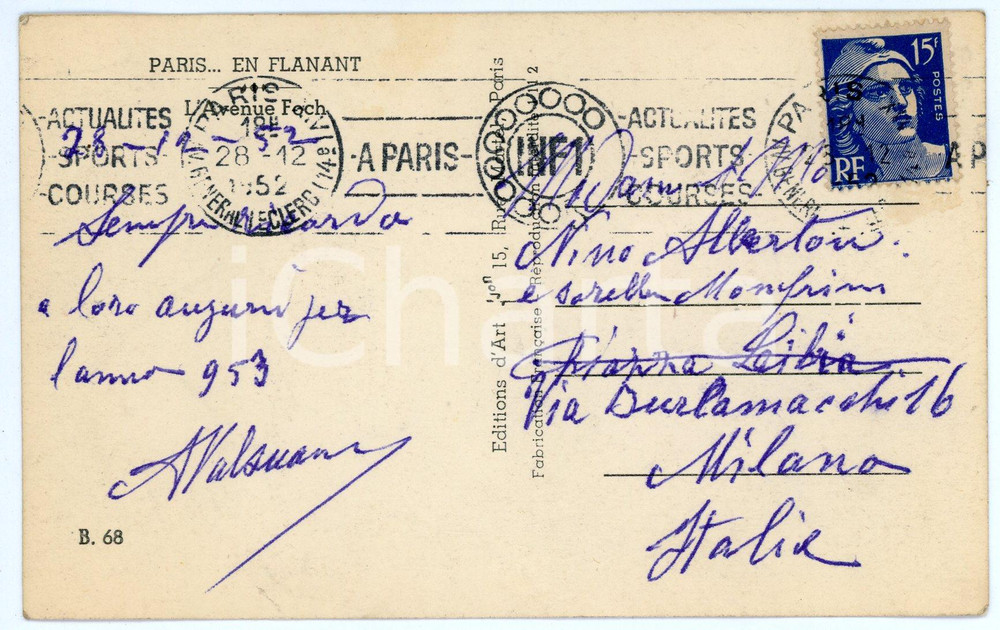 PARIS... EN FLANANT
L'Avenue Foch
ACTUALITES
SPORTS
COURSES
18H
28-12
1952
GENERAL LECLERC (14e)
A PARIS
INF1
ACTUALITES
SPORTS
COURSES
A P
15F
POSTES
RF
28-12-52
Sempre ricordo
a loro auguri per
l'anno 953
B. 68
Editions d'Art
15, Rue
Paris
Fabrication Française - Reproduction interdite
Nino Albertoni
e sorelle Monfrini
Piazza Libia
Via Burlamacchi 16
Milano
Italia
iCharta